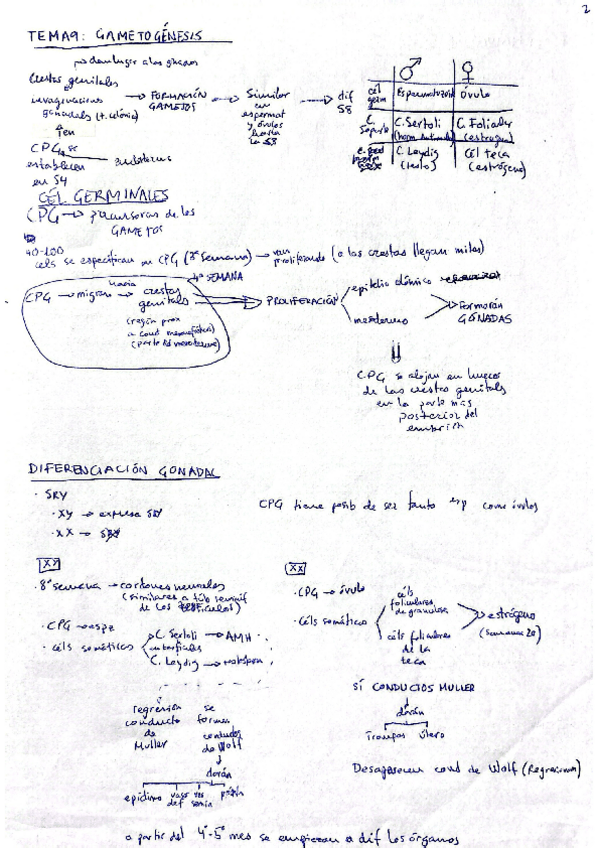 2
TEMA9: GAMETOGÉNESIS
dan lugar a las gónadas
Crestas genitales
invaginaciones
gonadales (t. celómico)
FORMACIÓN
GAMETOS
Similar
en
espermat
y óvulos
hasta
la S8
dif
S8
♂ ♀
cél
germ
Espermatozoid Óvulo
C.
Soporte
C. Sertoli C. Folicular
(estrógeno)
C. Leydig Cél teca
(testo) (estrógeno)
en
CPG se
establecen
en S4
CÉL GERMINALES
CPG → precursoras de los
GAMETOS
40-100
cels se especifican en CPG (3ª semana) → van
proliferando (a las crestas llegan miles)
4ª SEMANA
CPG → migran hacia crestas
genitales
(región prox
a cond mesonéfrico)
(parte del mesodermo)
PROLIFERACIÓN
epitelio celómico
mesodermo
Formarán
GÓNADAS
CPG se alojan en huecos
de las crestas genitales
en la parte más
posterior del
embrión
DIFERENCIACIÓN GONADAL
· SRY
· XY → expresa SRY
· XX → SRY
CPG tiene posib de ser tanto esp como óvulos
· 8ª semana → cordones
(similares a túb seminif
de los testículos)
· CPG → espz
· céls somáticas
C. Sertoli → AMH
C. Leydig →
regresión
conducto
de
Muller
se
forma
conducto
de Wolf
darán
epidimo vaso
def ves
semin
XX
· CPG → óvulo
· Céls somáticas
céls
foliculares
de granulosa
céls foliculares
de la
teca
estrógeno
(semana 20)
SÍ CONDUCTOS MULLER
darán
Trompas útero
Desaparecen cond de Wolf (Regresionan)
a partir del 4º-5º mes se empiezan a dif los órganos